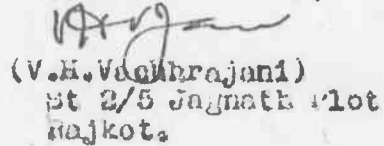 (V.H.Vachhrajani)
St 2/5 Jagnath Plot
Rajkot.